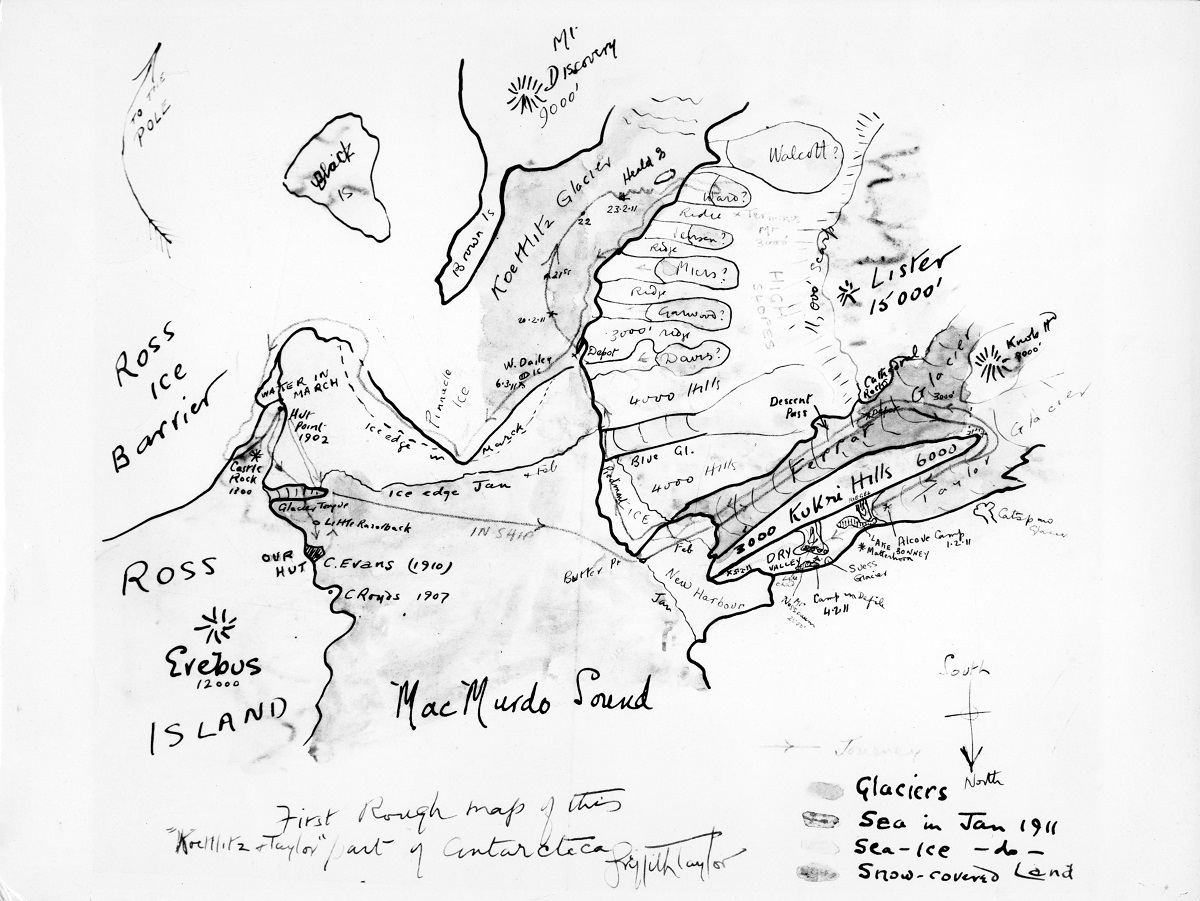 Mt.
Discovery
9000'
TO THE
POLE
Black
Is
Brown Is
Koettlitz Glacier
Heald
23.2.11
22
20.2.11
Walcott?
Ward?
Ridge
Terminus
Mt
3000'
Ridge
Miers?
Ridge
Garwood?
3000' ridge
Davis?
HIGH
SLOPES
Scarp
Lister
15000'
Depot
W. Dailey
Is
6.3.11
4000 Hills
Ross
ICE
Barrier
WATER IN
MARCH
Hut
Point
1902
Pinnacle
Ice
Ice edge
March
Ice edge Jan
+ Feb
Castle
Rock
1300
Glacier Tongue
Little Razorback
IN SHIP
OUR
HUT
C. Evans (1910)
C Royds 1907
ROSS
Erebus
12000
ISLAND
MacMurdo Sound
Blue Gl.
4000 Hills
Piedmont ICE
Descent
Pass
Cathedral
Rocks
Depot
Knob Hd
8000'
Glacier
3000'
Glacier
Ferrar
Kukri Hills
3000
6000
Taylor
RIEGEL
DRY
VALLEY
LAKE
BONNEY
Matterhorn
Alcove Camp
1.2.11
Suess
Glacier
Camp in Defile
4.2.11
Butter Pt
Feb
New Harbour
Jan
South
North
Journey
Glaciers
Sea in Jan 1911
Sea-Ice - do -
Snow-covered Land
First Rough map of this
"Koettlitz + Taylor" part of Antarctica
Griffith Taylor